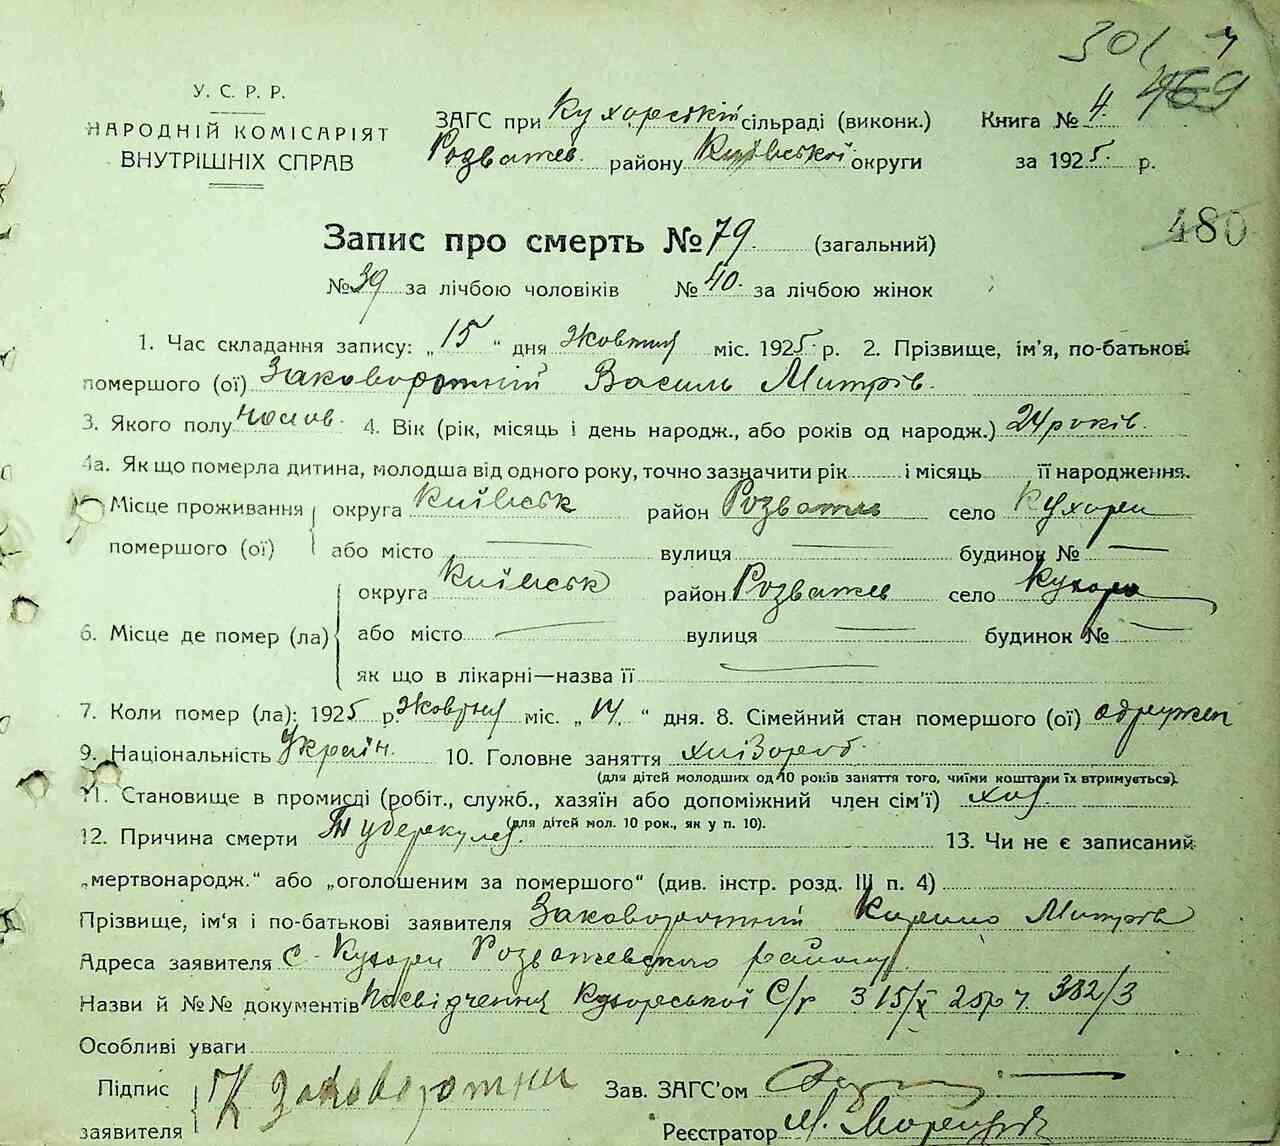 301
469
У. С. Р. Р.
НАРОДНІЙ КОМІСАРІЯТ
ВНУТРІШНІХ СПРАВ
ЗАГС при Кухарській сільраді (виконк.) Книга № 4.
Розважев. району Київської округи за 1925 р.
480
Запис про смерть № 79. (загальний)
№ 39 за лічбою чоловіків № 40. за лічбою жінок
1. Час складання запису: „15“ дня Жовтня міс. 1925 р. 2. Прізвище, ім’я, по-батькові
помершого (ої) Заковоротній Василь Митрів.
3. Якого полу чолов. 4. Вік (рік, місяць і день народж., або років од народж.) 24 років.
4а. Як що померла дитина, молодша від одного року, точно зазначити рік і місяць її народження.
Місце проживання округа Київськ район Розважев село Кухари
помершого (ої) або місто — вулиця — будинок № —
округа Київськ район Розважев село Кухари
6. Місце де помер (ла) або місто — вулиця — будинок № —
як що в лікарні—назва її —
7. Коли помер (ла): 1925 р. Жовтня міс. „14.“ дня. 8. Сімейний стан помершого (ої) одружен
9. Національність Україн. 10. Головне заняття хлізороб.
(для дітей молодших од 10 років заняття того, чиїми коштами їх втримується).
11. Становище в промислі (робіт., служб., хазяїн або допоміжний член сім’ї) хаз.
(для дітей мол. 10 рок., як у п. 10).
12. Причина смерти Туберкулез. 13. Чи не є записаний
„мертвонародж.“ або „оголошеним за помершого“ (див. інстр. розд. III п. 4)
Прізвище, ім’я і по-батькові заявителя Заковоротний Кирило Митрів
Адреса заявителя С. Кухари Розважевского району.
Назви й №№ документів Посвідчення Кухарської С/р з 15/X 25р ч. 382/3
Особливі уваги
Підпис К Заковоротни Зав. ЗАГС’ом
заявителя Реєстратор М.